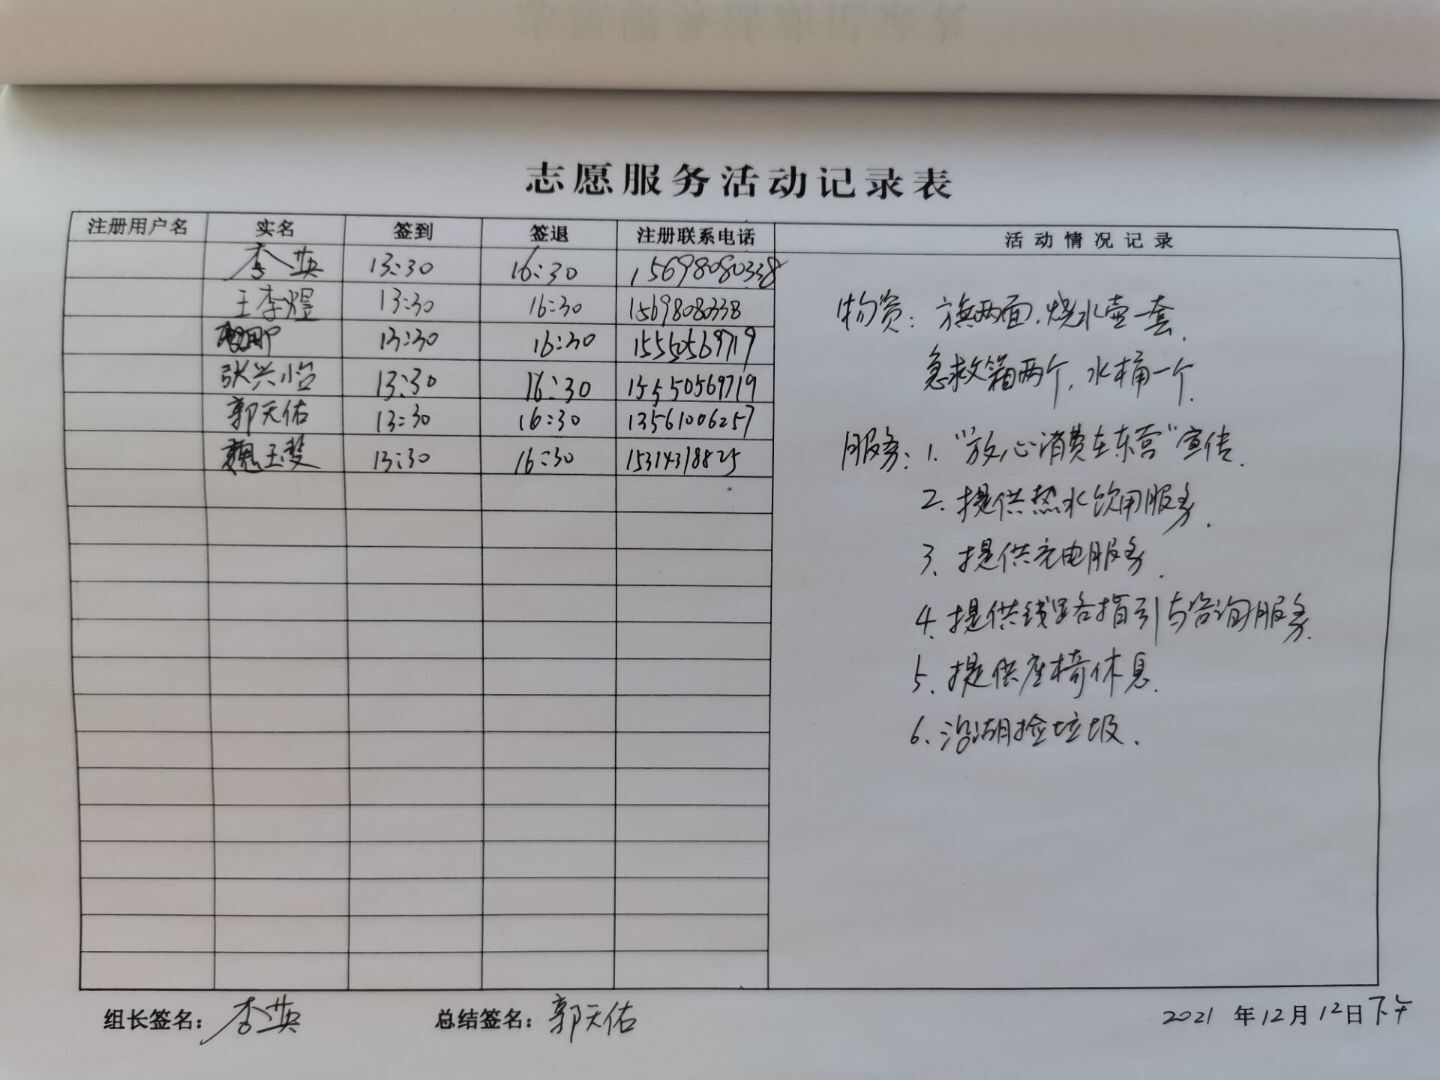 志愿服务活动记录表
注册用户名 实名 签到 签退 注册联系电话 活动情况记录
李英 13:30 16:30 15698080338
王李煜 13:30 16:30 1569808338
13:30 16:30 15550569719
张兴怡 13:30 16:30 15550569719
郭天佑 13:30 16:30 13561006257
魏玉斐 13:30 16:30 15314318825
物资：旗两面，烧水壶一套，
急救箱两个，水桶一个.
服务：1."放心消费在东营"宣传.
2.提供热水饮用服务.
3、提供充电服务.
4.提供线路指引与咨询服务.
5、提供座椅休息.
6、沿湖捡垃圾.
组长签名：李英 总结签名：郭天佑 2021 年12月12日下午